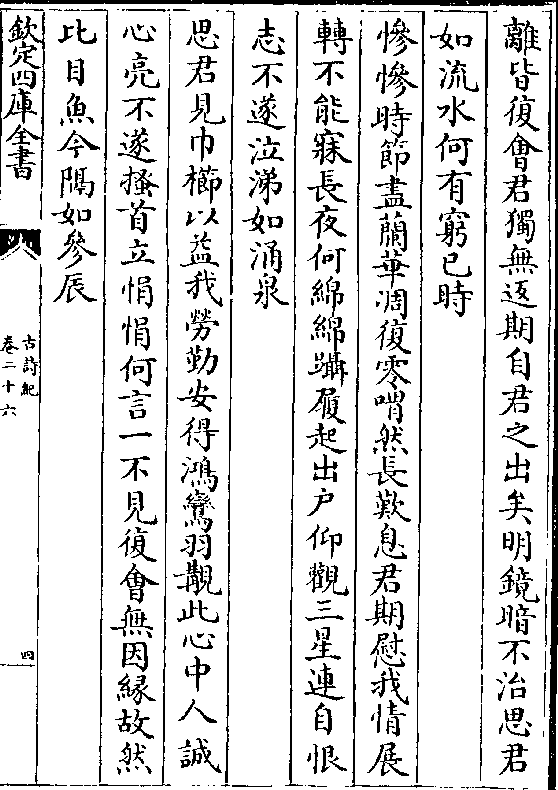 離皆復會君獨無返期自君之出矣明鏡暗不治思君
如流水何有窮已時
慘慘時節盡蘭華凋復零喟然長歎息君期慰我情展
轉不能寐長夜何綿綿躡履起出戶仰觀三星連自恨
志不遂泣涕如涌泉
思君見巾櫛以益我勞勤安得鴻鸞羽覯此心中人誠
心亮不遂搔首立悁悁何言一不見復會無因緣故然
比目魚今隔如參辰
欽定四庫全書
古詩紀
卷二十六
四